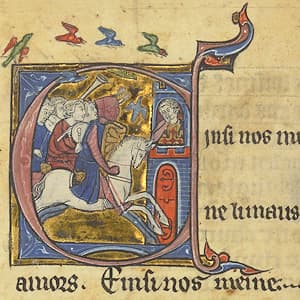 insi nos me
ne fumaus
amors. Einsi nos meine